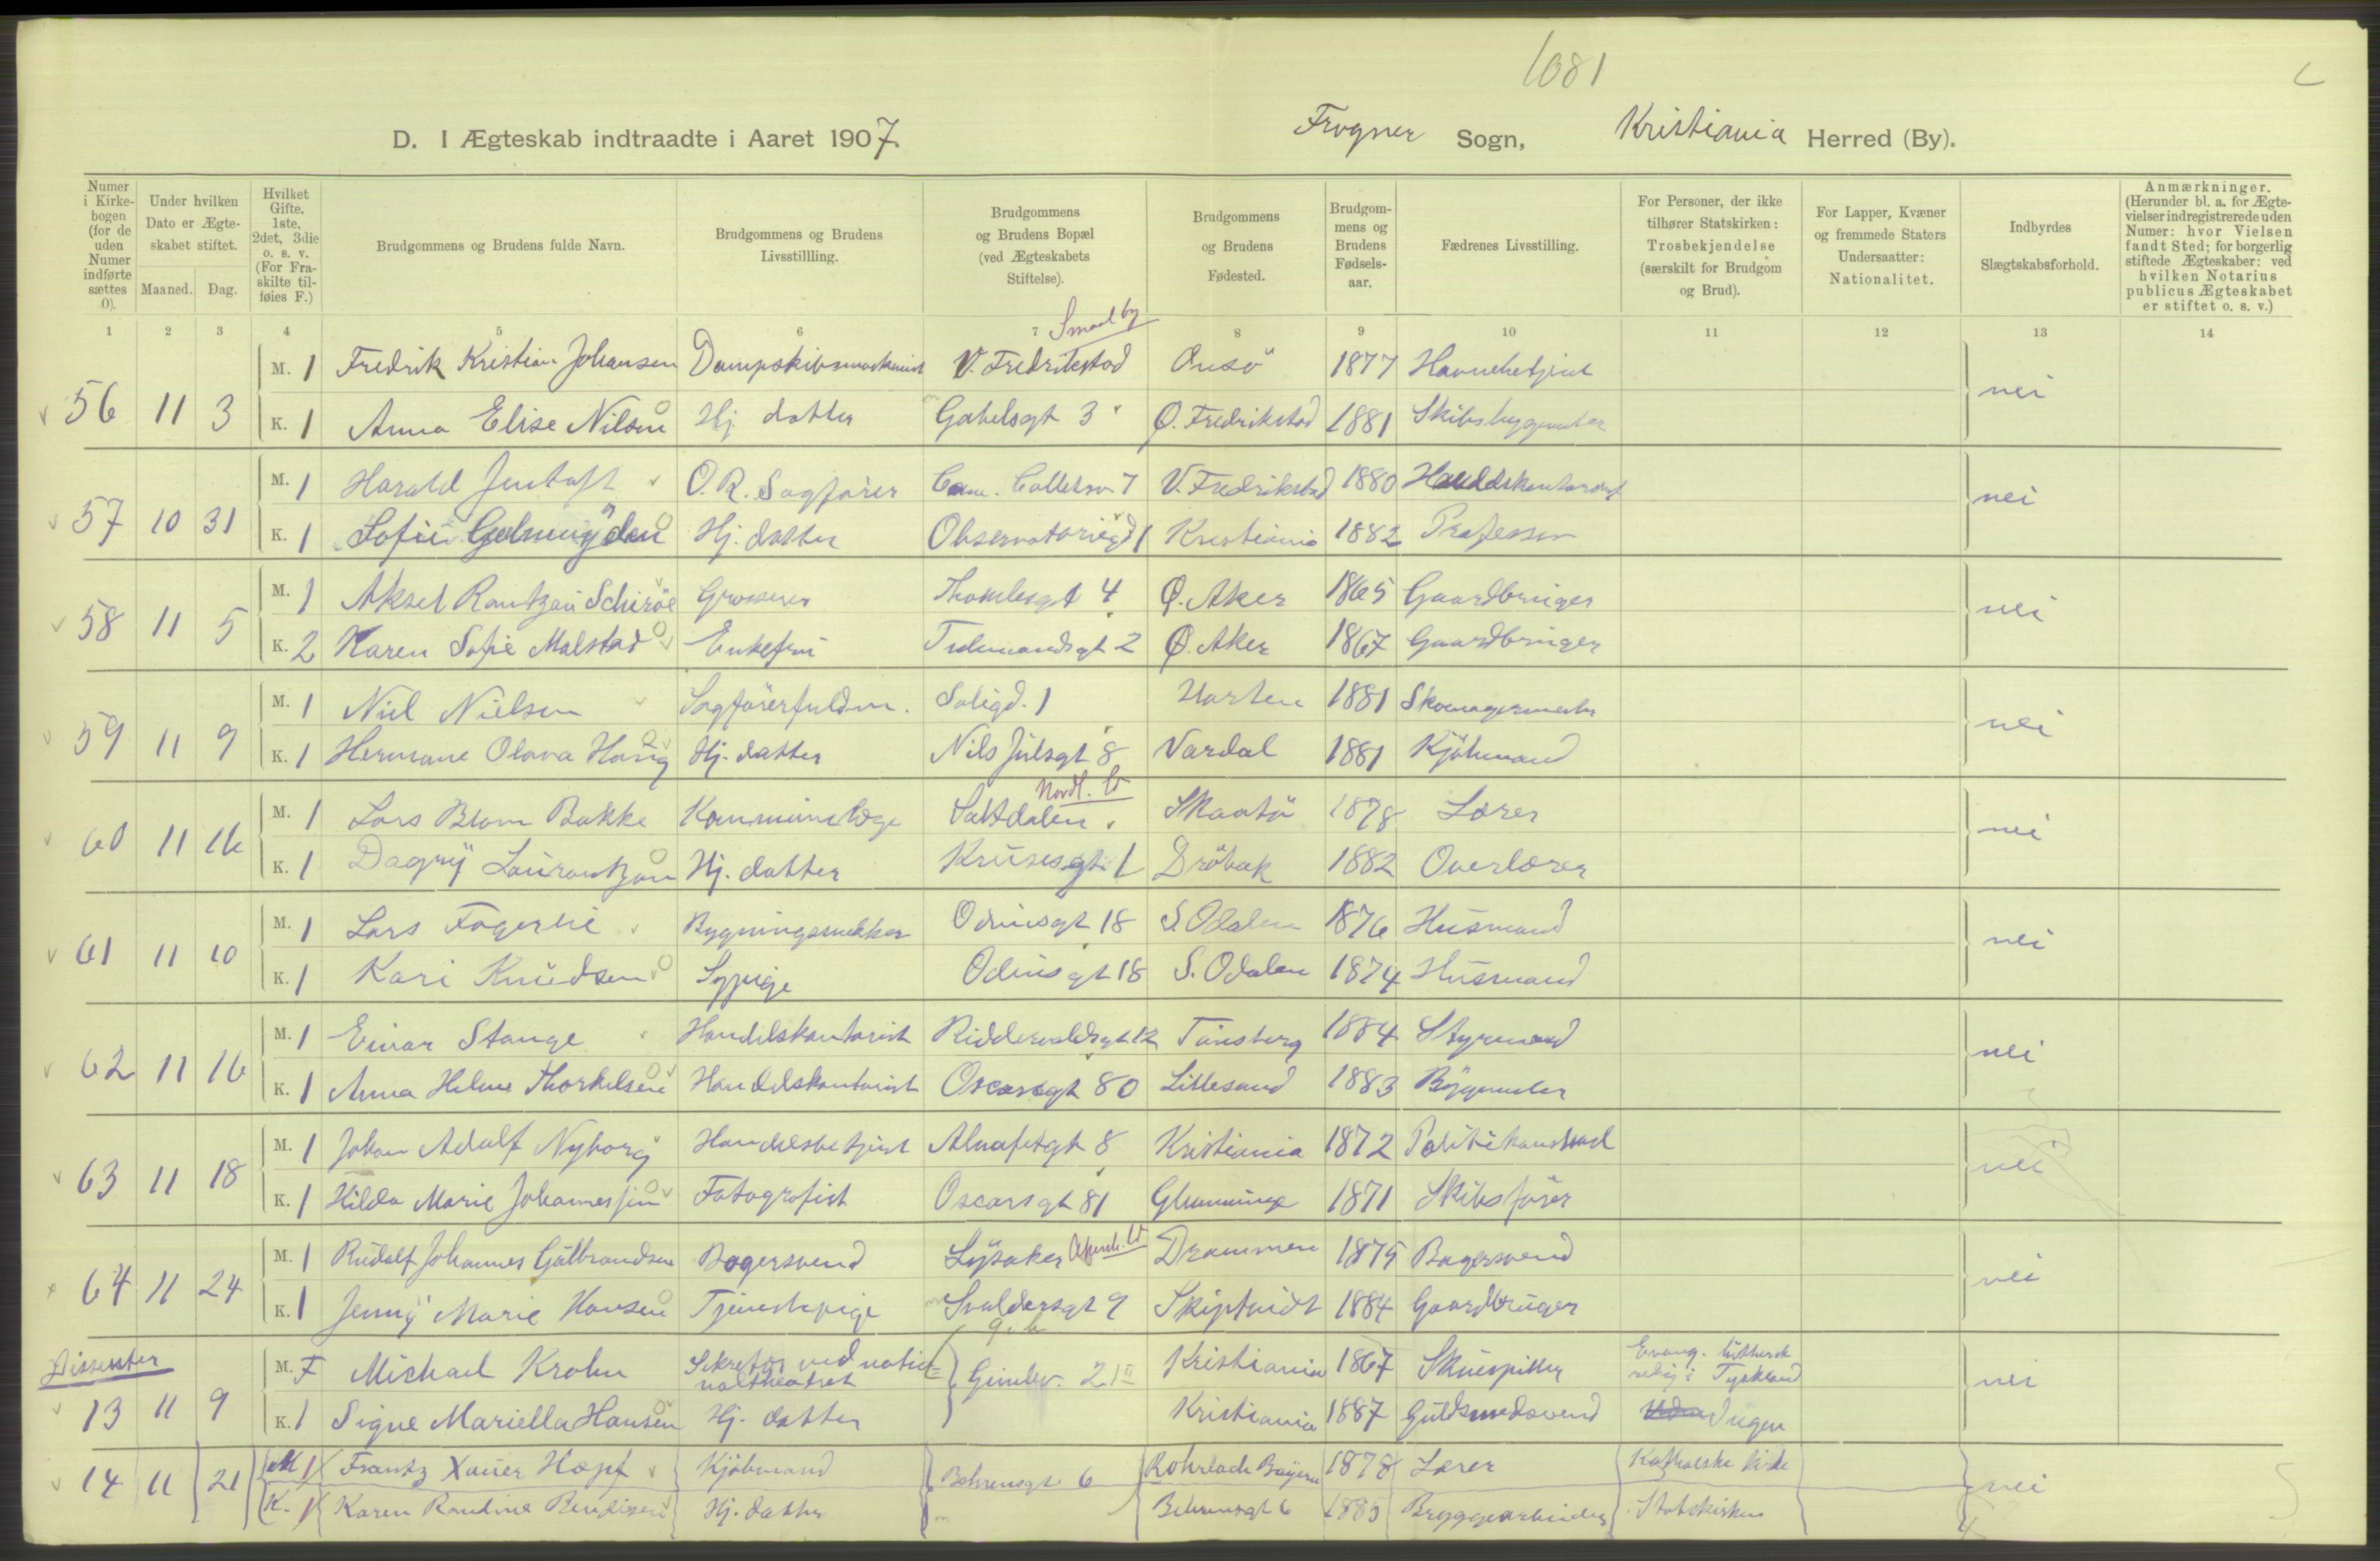 1081
D. I Ægteskab indtraadte i Aaret 1907.
Frogner Sogn, Kristiania Herred (By).
Numer i Kirkebogen (for de uden Numer indførte sættes 0).
Under hvilken Dato er Ægteskabet stiftet.
Maaned. Dag.
Hvilket Gifte. 1ste, 2det, 3die o. s. v. (For Fraskilte tilføies F.)
Brudgommens og Brudens fulde Navn.
Brudgommens og Brudens Livsstillling.
Brudgommens og Brudens Bopæl (ved Ægteskabets Stiftelse).
Brudgommens og Brudens Fødested.
Brudgommens og Brudens Fødselsaar.
Fædrenes Livsstilling.
For Personer, der ikke tilhører Statskirken: Trosbekjendelse (særskilt for Brudgom og Brud).
For Lapper, Kvæner og fremmede Staters Undersaatter: Nationalitet.
Indbyrdes Slægtskabsforhold.
Anmærkninger. (Herunder bl. a. for Ægtevielser indregistrerede uden Numer: hvor Vielsen fandt Sted; for borgerlig stiftede Ægteskaber: ved hvilken Notarius publicus Ægteskabet er stiftet o. s. v.)
1 2 3 4 5 6 7 8 9 10 11 12 13 14
Smaaby
M. 1 Fredrik Kristian Johansen Dampskibsmaskinist V. Fredrikstad Onsö 1877 Havnebetjent
56 11 3 nei
K. 1 Anna Elise Nilsen Hj. datter Gabelsgt 3 Ø. Fredrikstad 1881 Skibsbygmester
M. 1 Harald Justoft O.R. Sagfører Cam. Colletsv. 7 V. Fredrikstad 1880 Handelskontorist
57 10 31 nei
K. 1 Sofie Hj. datter Observatoriegd 1 Kristiania 1882 Professor
M. 1 Aksel Rantzau Schiröe Grosserer Thomlesgt 4 Ø. Aker 1865 Gaardbruger
58 11 5 nei
K. 2 Karen Sofie Malstad Enkefru Tidemandsgt 2 Ø. Aker 1867 Gaardbruger
M. 1 Niel Nielsen Sagförerfuldm. Soligd. 1 Horten 1881 Skomagermester
59 11 9 nei
K. 1 Hermane Olava Haug Hj. datter Nils Julsgt 8 Vardal 1881 Kjöbmand
Nordl.
M. 1 Lars Blom Bakke Kommunelæge Saltdalen Skaatö 1878 Lærer
60 11 16 nei
K. 1 Dagny Laurantzon Hj. datter Krusesgt 1 Dröbak 1882 Overlærer
M. 1 Lars Fagerlie Bygningssnekker Odinsgt 18 S. Odalen 1876 Husmand
61 11 10 nei
K. 1 Kari Knudsen Sypige Odinsgt 18 S. Odalen 1874 Husmand
M. 1 Einar Stange Handelskontorist Riddervoldsgt 12 Tönsberg 1884 Styrmand
62 11 16 nei
K. 1 Anna Helene Thorkelsen Handelskontorist Oscarsgt 80 Lillesand 1883 Bygmester
M. 1 Johan Adolf Nyborg Handelsbetjent Alnafetgt 8 Kristiania 1872 Politikonstabel
63 11 18 nei
K. 1 Hilda Marie Johannessen Fotografist Oscarsgt 81 Glemminge 1871 Skibsförer
M. 1 Rudolf Johannes Gulbrandsen Bagersvend Lysaker Akersh. Drammen 1875 Bagersvend
64 11 24 nei
K. 1 Jenny Marie Hansen Tjenestepige Svoldersgt 9 Skiptvidt 1884 Gaardbruger
g. b.
Dissenter
M. F Michael Krohn Sekretær ved natio= Gimlev. 21 II Kristiania 1867 Skuespiller Evang. luthersk
naltheatret relig. i Tyskland
13 11 9 nei
K. 1 Signe Mariella Hansen Hj. datter Kristiania 1887 Guldsmedsvend Ingen
M 1 Frantz Xauer Hopf Kjöbmand Behrensgt 6 Rohrlach Bayern 1878 Lærer Katholske kirke
14 11 21 nei
K. 1 Karen Randine Bendixen Hj. datter Behrensgt 6 1885 Bryggearbeider Statskirken